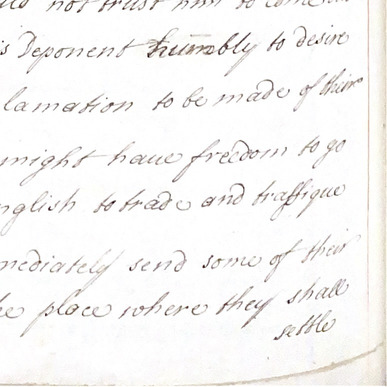 not trust him to come
is Deponent humbly to desire
lamation to be made of their
might have freedom to go
nglish to trade and traffique
mediately send some of their
he place where they shall
settle